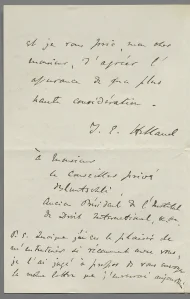 et je vous prie, mon cher
monsieur, d'agréer l'
assurance de ma plus
haute considération.
T. E. Holland
À Monsieur
le Conseiller privé
Bluntschli,
Ancien Président de l'Institut
de Droit International, &c.
P.S. Quoique j'ai eu le plaisir de
m'entretenir si récemment avec vous,
je l'ai jugé à propos de vous envoyer
la même lettre que j'envoie aujourd'hui